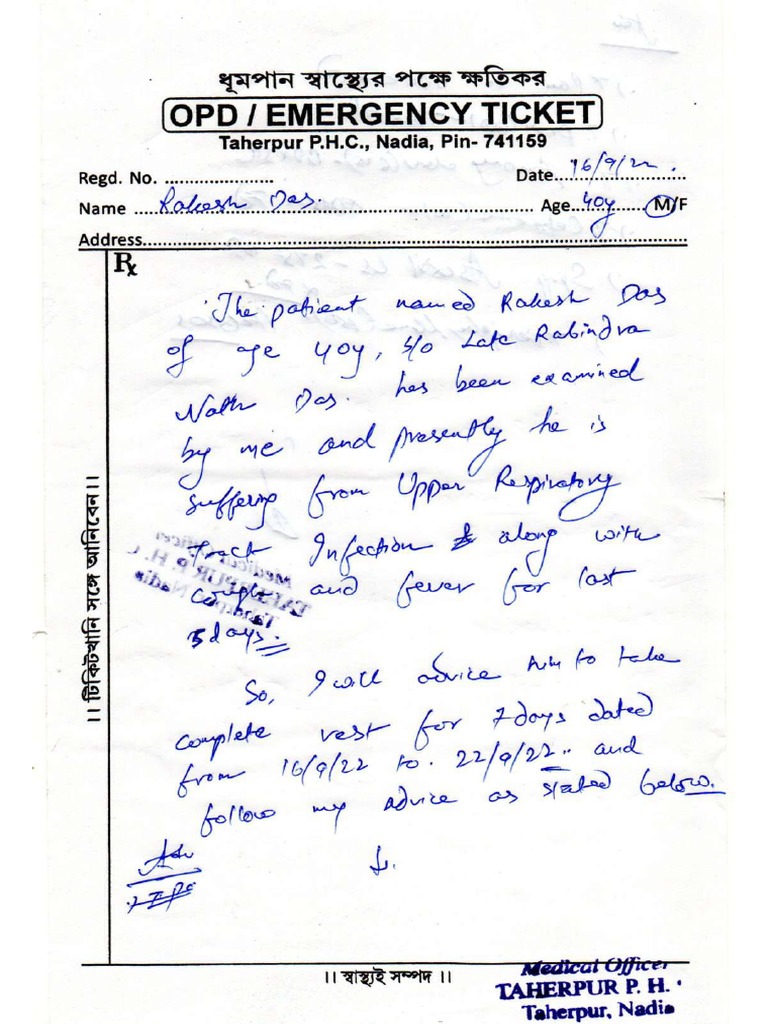 ধূমপান স্বাস্থ্যের পক্ষে ক্ষতিকর
OPD / EMERGENCY TICKET
Taherpur P.H.C., Nadia, Pin- 741159
Regd. No. .................... Date 16/9/22.
Name Rakesh Das. Age 40y M/F
Address
Rx
The patient named Rakesh Das
of age 40y, s/o Late Rabindra
Nath Das. has been examined
by me and presently he is
suffering from Upper Respiratory
Tract Infection along with
cough and fever for last
5 days.
So, I will advice him to take
complete rest for 7 days dated
from 16/9/22 to 22/9/22.. and
follow my advice as stated below.
Adv
।। টিকিটখানি সঙ্গে আনিবেন ।।
Medical Officer
TAHERPUR P. H. C.
Taherpur, Nadia
।। স্বাস্থ্যই সম্পদ ।।
Medical Officer
TAHERPUR P. H.
Taherpur, Nadia